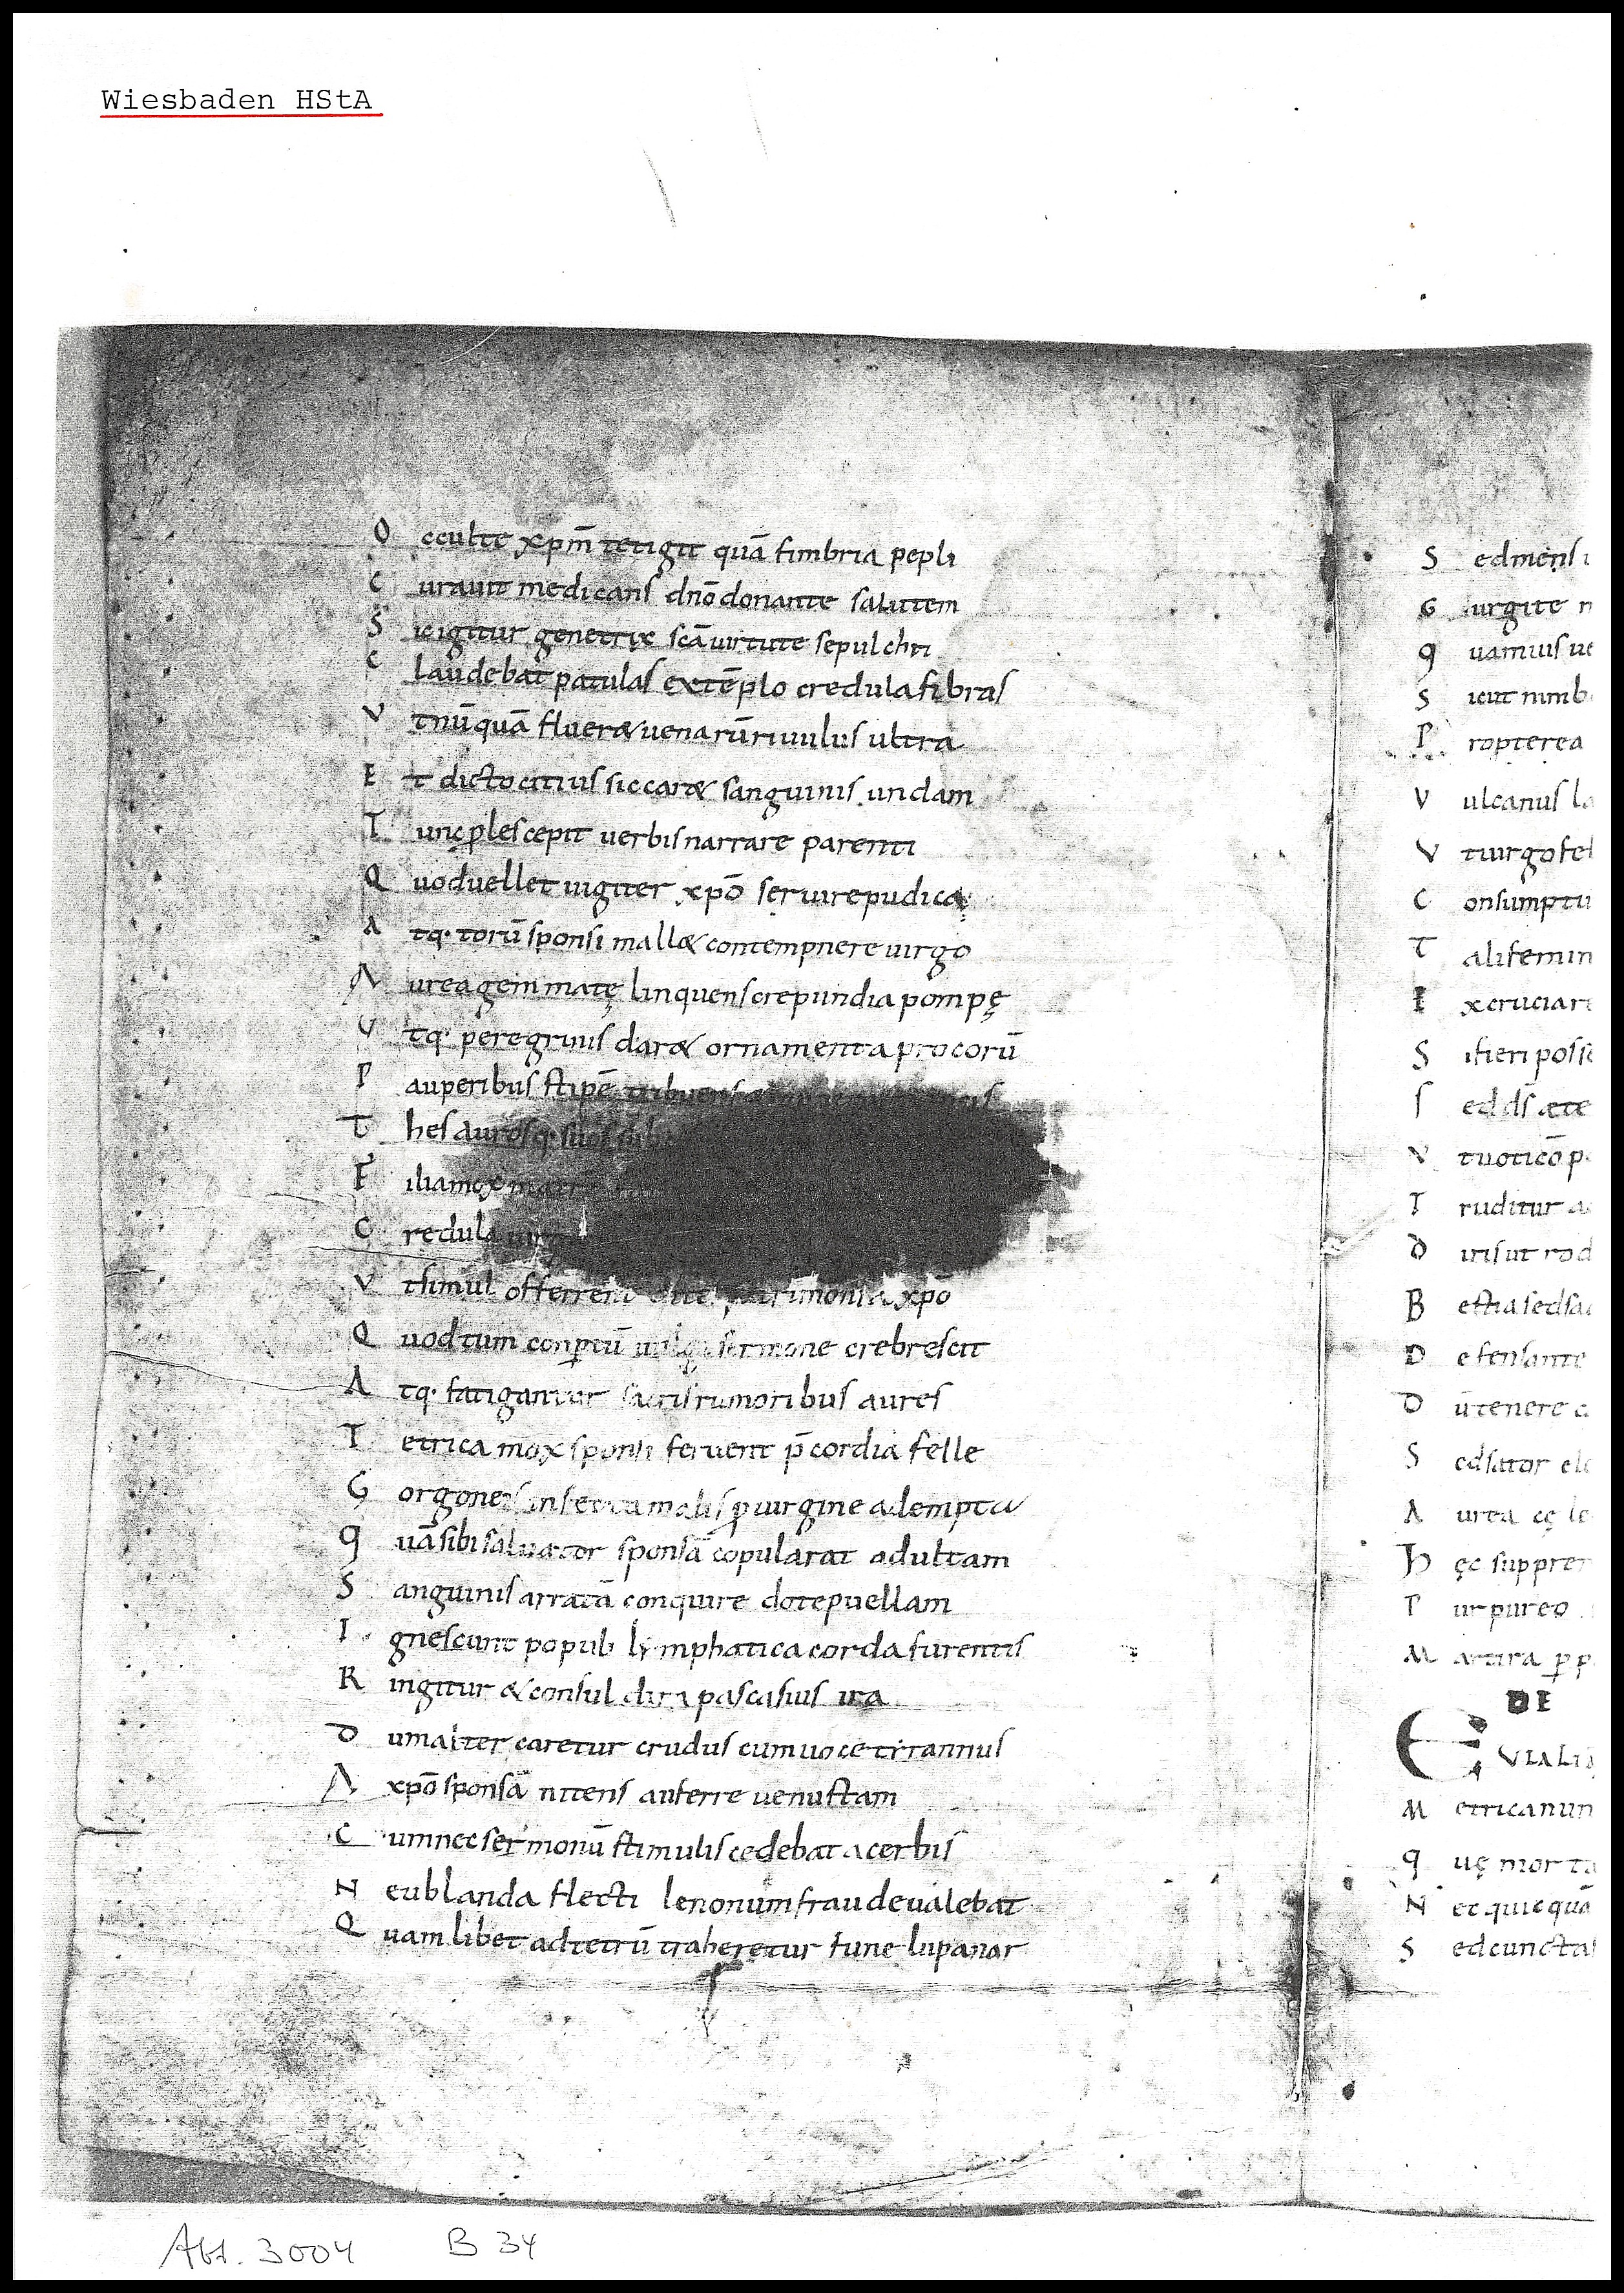 Wiesbaden HStA
O cculte xp̄m tetigit quā fimbria pepli
C urauit medicans dn̄o donante salutem
S ic igitur genetrix scā uirtute sepulchri
C laudebat patulas extēplo credula fibras
V t nūquā fluer& uenarū riuulus ultra
E t dicto citius siccar& sanguinis undam
T unc ꝓles cepit uerbis narrare parenti
Q uod uellet iugiter xpō seruire pudica
A tq· torū sponsi mall& contempnere uirgo
A urea gemmatę linquens crepundia pompę
V tq· peregrinis dar& ornamenta procorū
P auperibus stipē tribuens
T hesaurosq· suos
F ilia mox matr
C redula
V t simul offerrent patrimonia xpō
Q uod tum conꝑtū uulgi sermone crebrescit
A tq· fatigantur sacris rumoribus aures
T etrica mox sponsi feruent p̄cordia felle
G orgoneis infecta malis ꝓ uirgine adempta
q uā sibi saluator sponsā copularat adultam
S anguinis arratā conquire dote puellam
I gnescunt populi lymphatica corda furentis
R ingitur & consul dira pascasius ira
D um aiter caretur crudus cum uoce tirannus
A xpō sponsā nitens auferre uenustam
C um nec sermonū stimulis cedebat acerbis
N eu blanda flecti lenonum fraude ualebat
Q uam libet ad tetrū traheretur tunc lupanar
S ed mens i
G urgite n
q uamuis ue
S icut nimb
P ropterea
V ulcanus la
V t uirgo fel
C onsumptu
T ali femin
E xcruciari
S i fieri posse
S ed ds̄ æte
V t uoticō p
T ruditur a
D iri sut rod
B estia sed sa
D efensante
D ū tenere c
S ed sator ele
A urea cę le
H ęc supprem
P urpureo
M artira ꝑ p
DE
E VLALI
M etrica nun
q uę mor ta
N ec quicquā
S ed cuncta
Abt. 3004 B 34